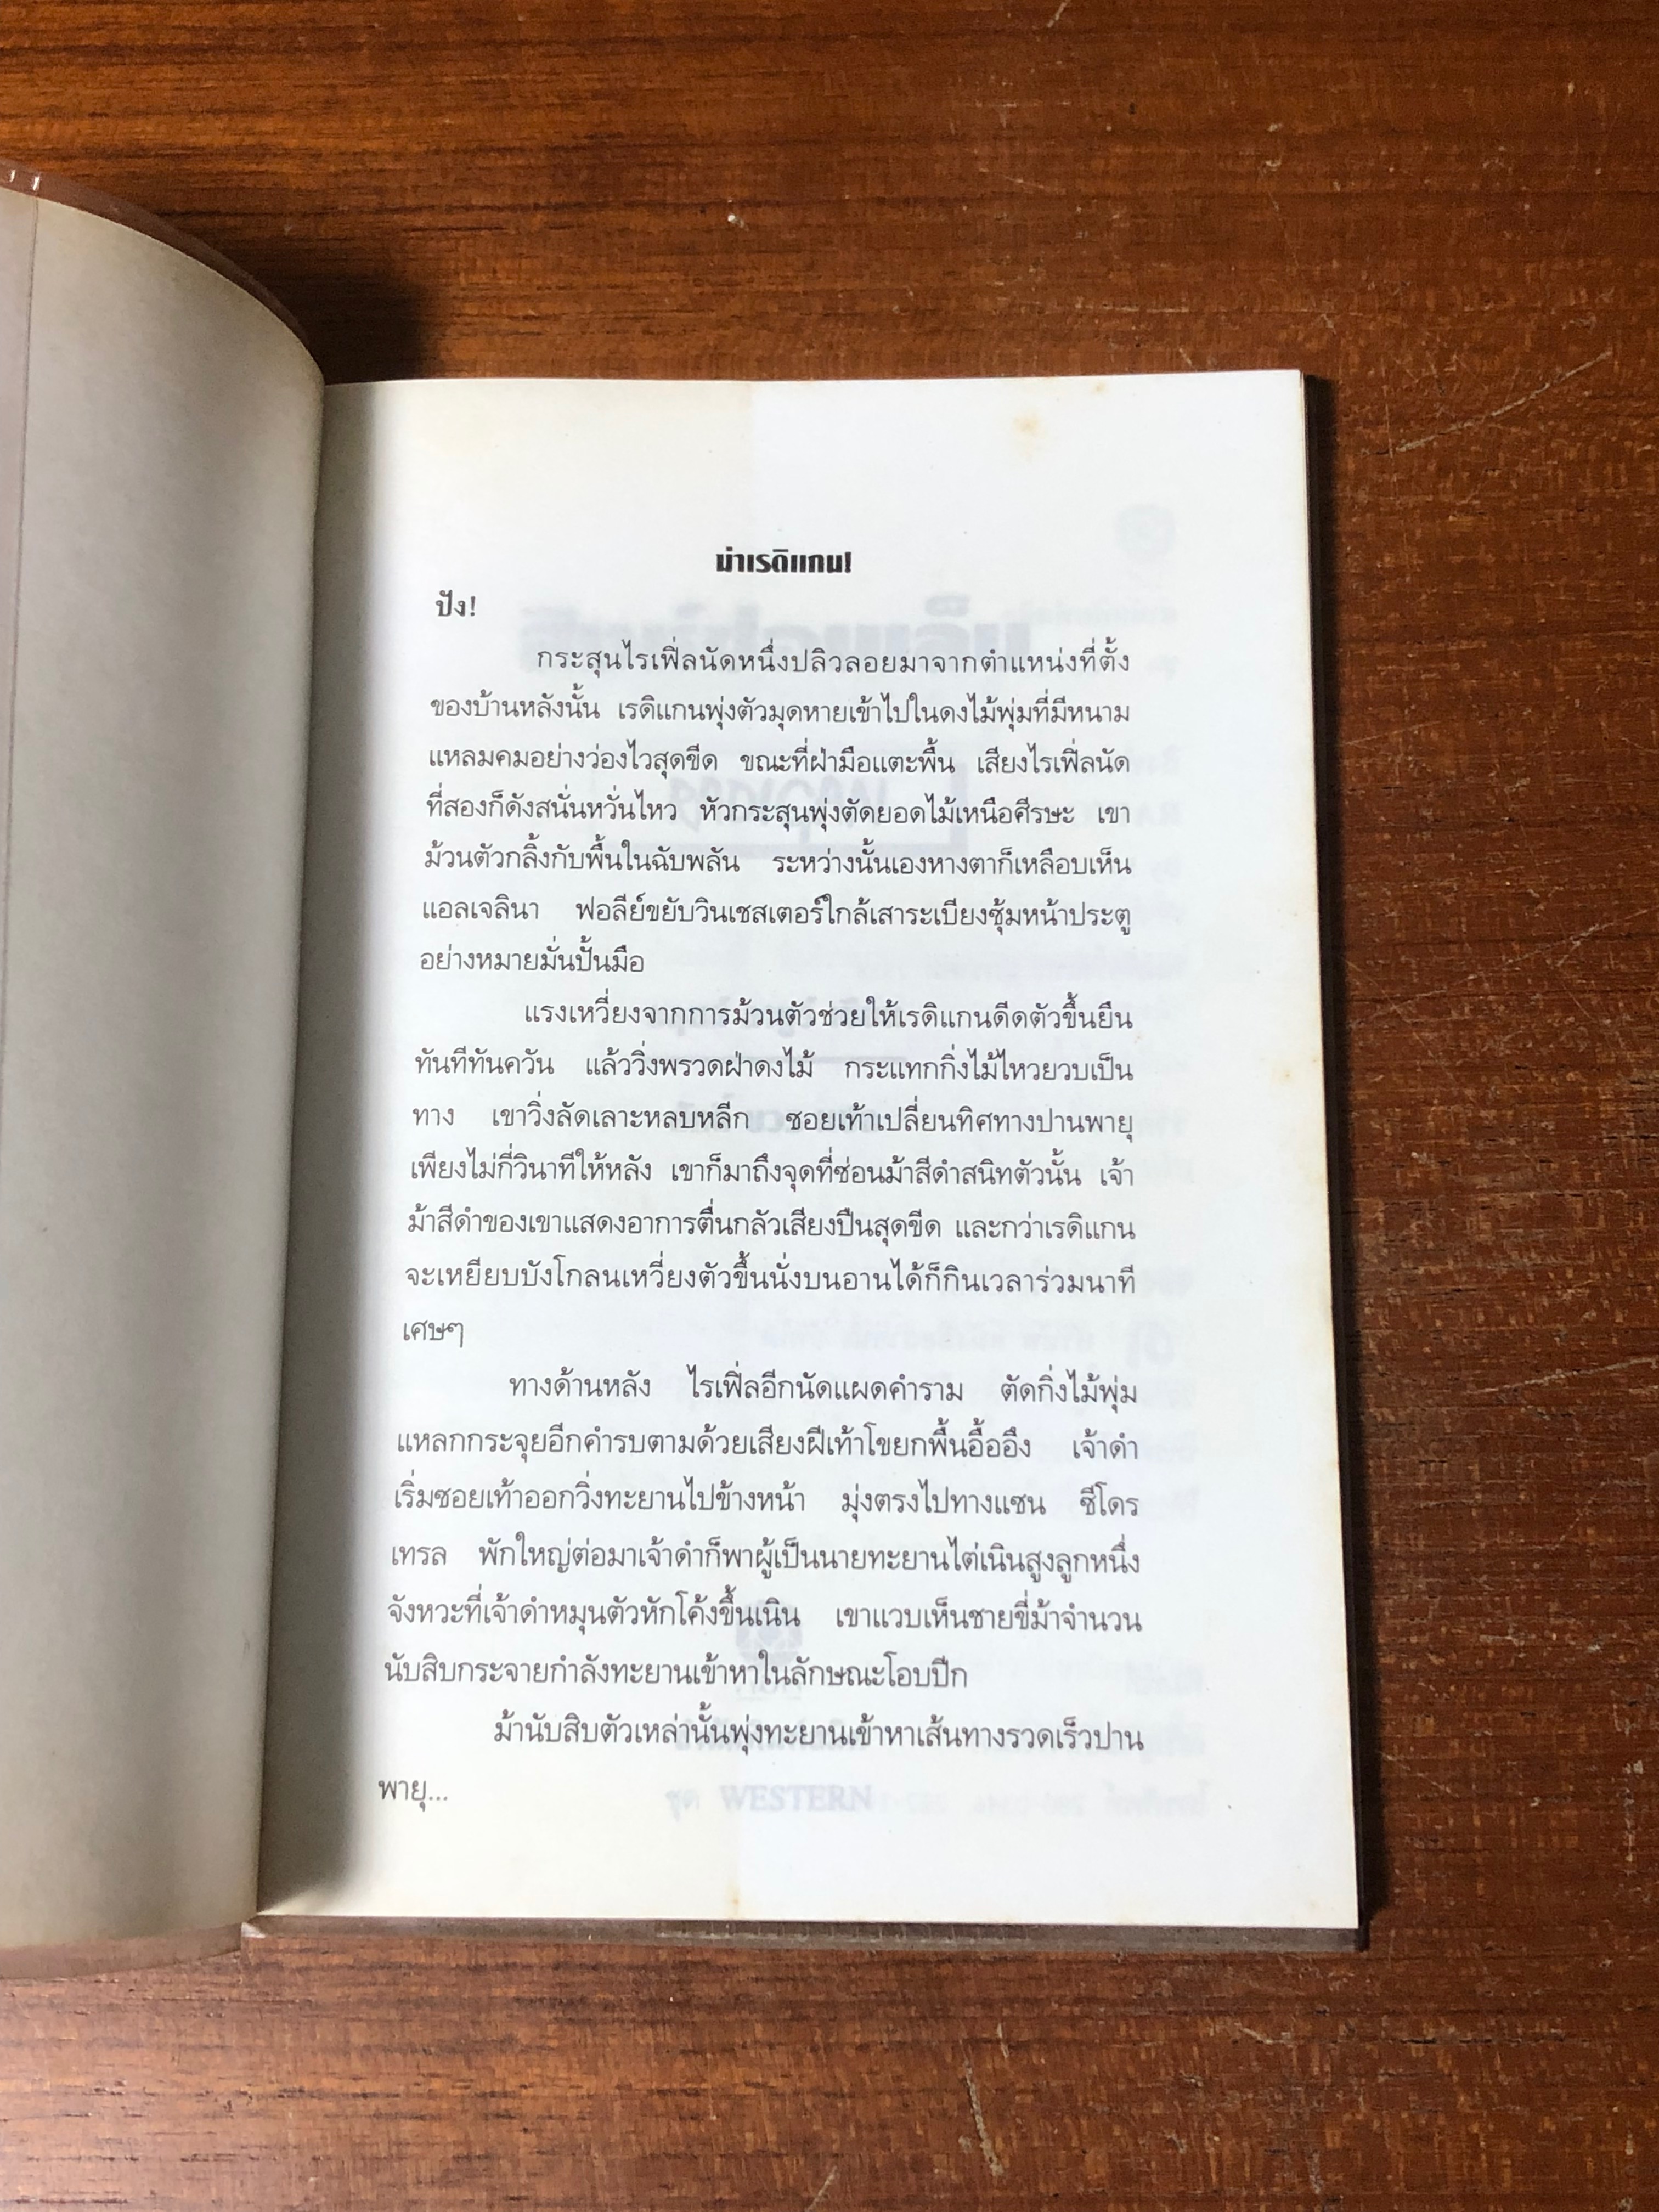 ฆ่าเรดิแกน!
ปัง!
กระสุนไรเฟิ่ลนัดหนึ่งปลิวลอยมาจากตำแหน่งที่ตั้ง
ของบ้านหลังนั้น เรดิแกนพุ่งตัวมุดหายเข้าไปในดงไม้พุ่มที่มีหนาม
แหลมคมอย่างว่องไวสุดขีด ขณะที่ฝ่ามือแตะพื้น เสียงไรเฟิ่ลนัด
ที่สองก็ดังสนั่นหวั่นไหว หัวกระสุนพุ่งตัดยอดไม้เหนือศีรษะ เขา
ม้วนตัวกลิ้งกับพื้นในฉับพลัน ระหว่างนั้นเองหางตาก็เหลือบเห็น
แอลเจลินา ฟอลีย์ขยับวินเชสเตอร์ใกล้เสาระเบียงซุ้มหน้าประตู
อย่างหมายมั่นปั้นมือ
แรงเหวี่ยงจากการม้วนตัวช่วยให้เรดิแกนดีดตัวขึ้นยืน
ทันทีทันควัน แล้ววิ่งพรวดฝ่าดงไม้ กระแทกกิ่งไม้ไหวยวบเป็น
ทาง เขาวิ่งลัดเลาะหลบหลีก ซอยเท้าเปลี่ยนทิศทางปานพายุ
เพียงไม่กี่วินาทีให้หลัง เขาก็มาถึงจุดที่ซ่อนม้าสีดำสนิทตัวนั้น เจ้า
ม้าสีดำของเขาแสดงอาการตื่นกลัวเสียงปืนสุดขีด และกว่าเรดิแกน
จะเหยียบบังโกลนเหวี่ยงตัวขึ้นนั่งบนอานได้ก็กินเวลาร่วมนาที
เศษๆ
ทางด้านหลัง ไรเฟิ่ลอีกนัดแผดคำราม ตัดกิ่งไม้พุ่ม
แหลกกระจุยอีกคำรบตามด้วยเสียงฝีเท้าโขยกพื้นอื้ออึง เจ้าดำ
เริ่มซอยเท้าออกวิ่งทะยานไปข้างหน้า มุ่งตรงไปทางแซน ซีโดร
เทรล พักใหญ่ต่อมาเจ้าดำก็พาผู้เป็นนายทะยานไต่เนินสูงลูกหนึ่ง
จังหวะที่เจ้าดำหมุนตัวหักโค้งขึ้นเนิน เขาแวบเห็นชายขี่ม้าจำนวน
นับสิบกระจายกำลังทะยานเข้าหาในลักษณะโอบปีก
ม้านับสิบตัวเหล่านั้นพุ่งทะยานเข้าหาเส้นทางรวดเร็วปาน
พายุ...
ชุด WESTERN